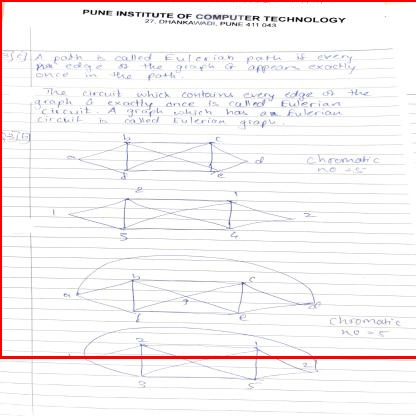 PUNE INSTITUTE OF COMPUTER TECHNOLOGY
27, DHANKAWADI, PUNE 411 043
A path is called Eulerian path if every
edge of the graph G appears exactly
once in the path.
The circuit which contains every edge of the
graph G exactly once is called Eulerian
circuit. A graph which has a Eulerian
circuit is called Eulerian graph.
b c
a d
f e
Chromatic
no = 5
2 1
1 2
5 4
b c
a g d
f e
Chromatic
no = 5
2 1
2
3 5